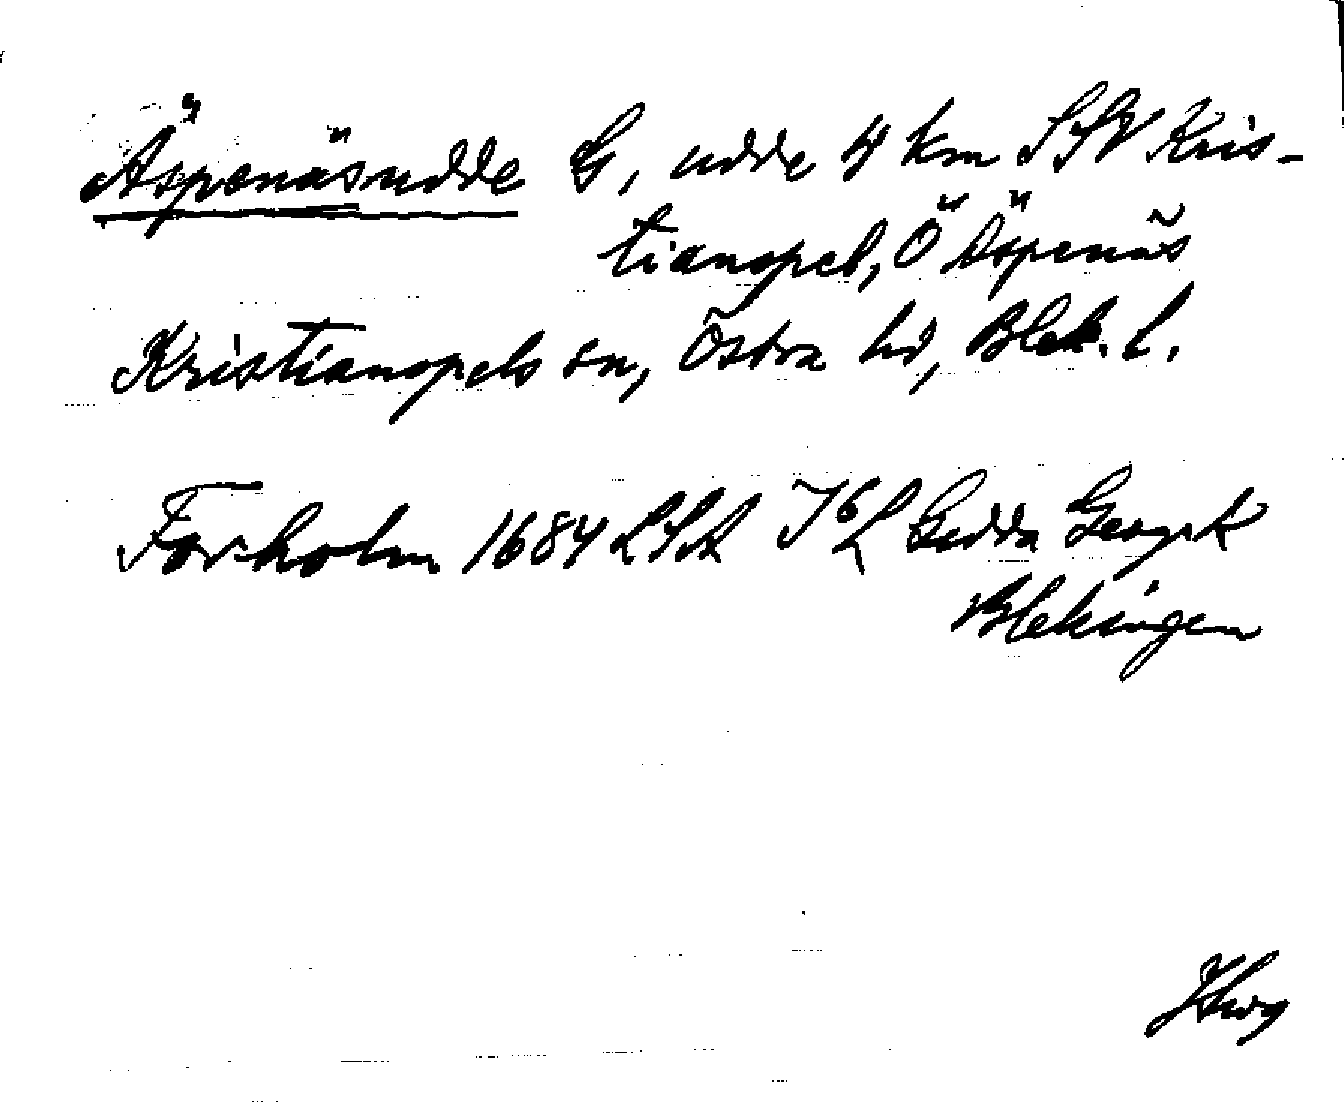 Äspenäsudde G, udde 4 km SSV Kris-
tianopel, Ö Äspenäs
Kristianopels sn, Östra hd, Blek. l.
Forholm 1684 LSA Gedda Geogrk
Blekingen